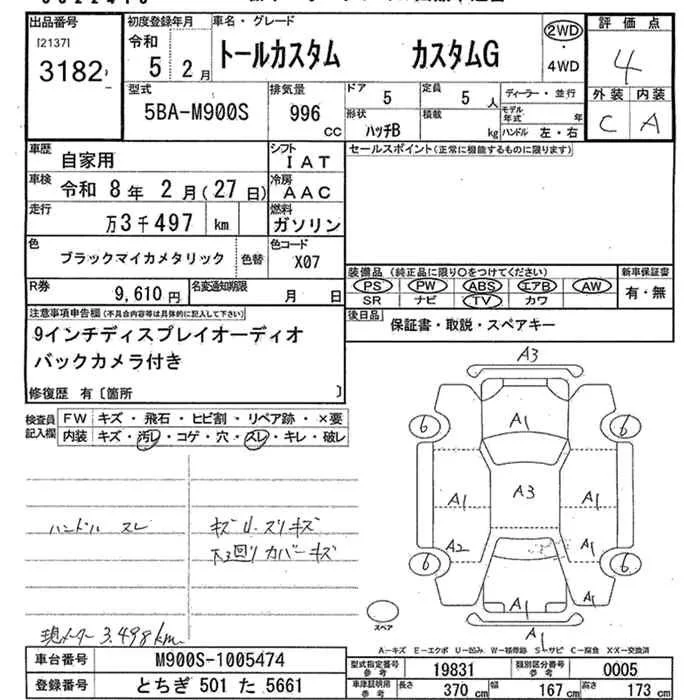 出品番号 初度登録年月 車名・グレード 評価点
[2137] 令和 トールカスタム カスタムG 2WD・4WD
3182 5年2月 4
型式 排気量 ドア 定員 ディーラー・並行 外装 内装
5BA-M900S 996cc 5 5人 モデル年式 年 C A
形状 ハッチB 積載 kg ハンドル 左・右
車歴 自家用 シフト IAT セールスポイント(正常に機能するものに限ります)
車検 令和 8年 2月(27日) 冷房 AAC
走行 万3千497 km 燃料 ガソリン
色 ブラックマイカメタリック 色替 色コード X07
装備品 (純正品に限り○をつけてください) 新車保証書
PS PW ABS エアB AW 有・無
SR ナビ TV カワ
R券 9,610円 名変通知期限 月 日
後日品 保証書・取説・スペアキー
注意事項申告欄(不具合内容等は具体的に記入して下さい)
9インチディスプレイオーディオ
バックカメラ付き
修復歴 有〔箇所 〕
検査員記入欄 FW キズ・飛石・ヒビ割・リペア跡・×要
内装 キズ・汚レ・コゲ・穴・スレ・キレ・破レ
A3
6 A1 6
A1 A3 A1
A2 A1
6 6
A1 A1 A1
A1
ハンドル スレ
キズ U. スリキズ
下回り カバーキズ
スペア
現メーター 3.498km
A-キズ E-エクボ U-凹み W-補修跡 S-サビ C-腐食 XX-交換済
車台番号 M900S-1005474
登録番号 とちぎ 501 た 5661
型式指定番号 参考 19831 類別区分番号 参考 0005
車体証明用 参考 長さ 370cm 幅 167cm 高さ 173cm